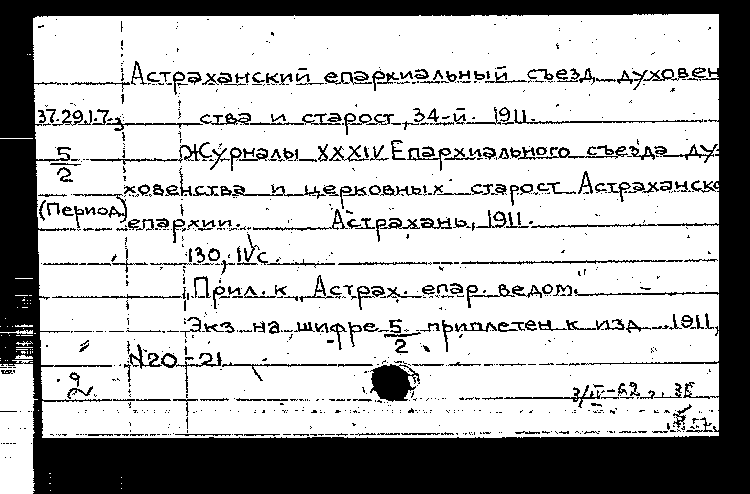 Астраханский епархиальный съезд духовен
37.29.1.7-3 ства и старост, 34-й. 1911.
5/2 Журналы XXXIV Епархиального съезда ду-
ховенства и церковных старост Астраханско
(Период.) епархии. Астрахань, 1911.
130, IV с.
"Прил. к „Астрах. епар. ведом."
Экз на шифре 5/2 приплетен к изд 1911,
N20-21
2
3/IV-62 г.
57.